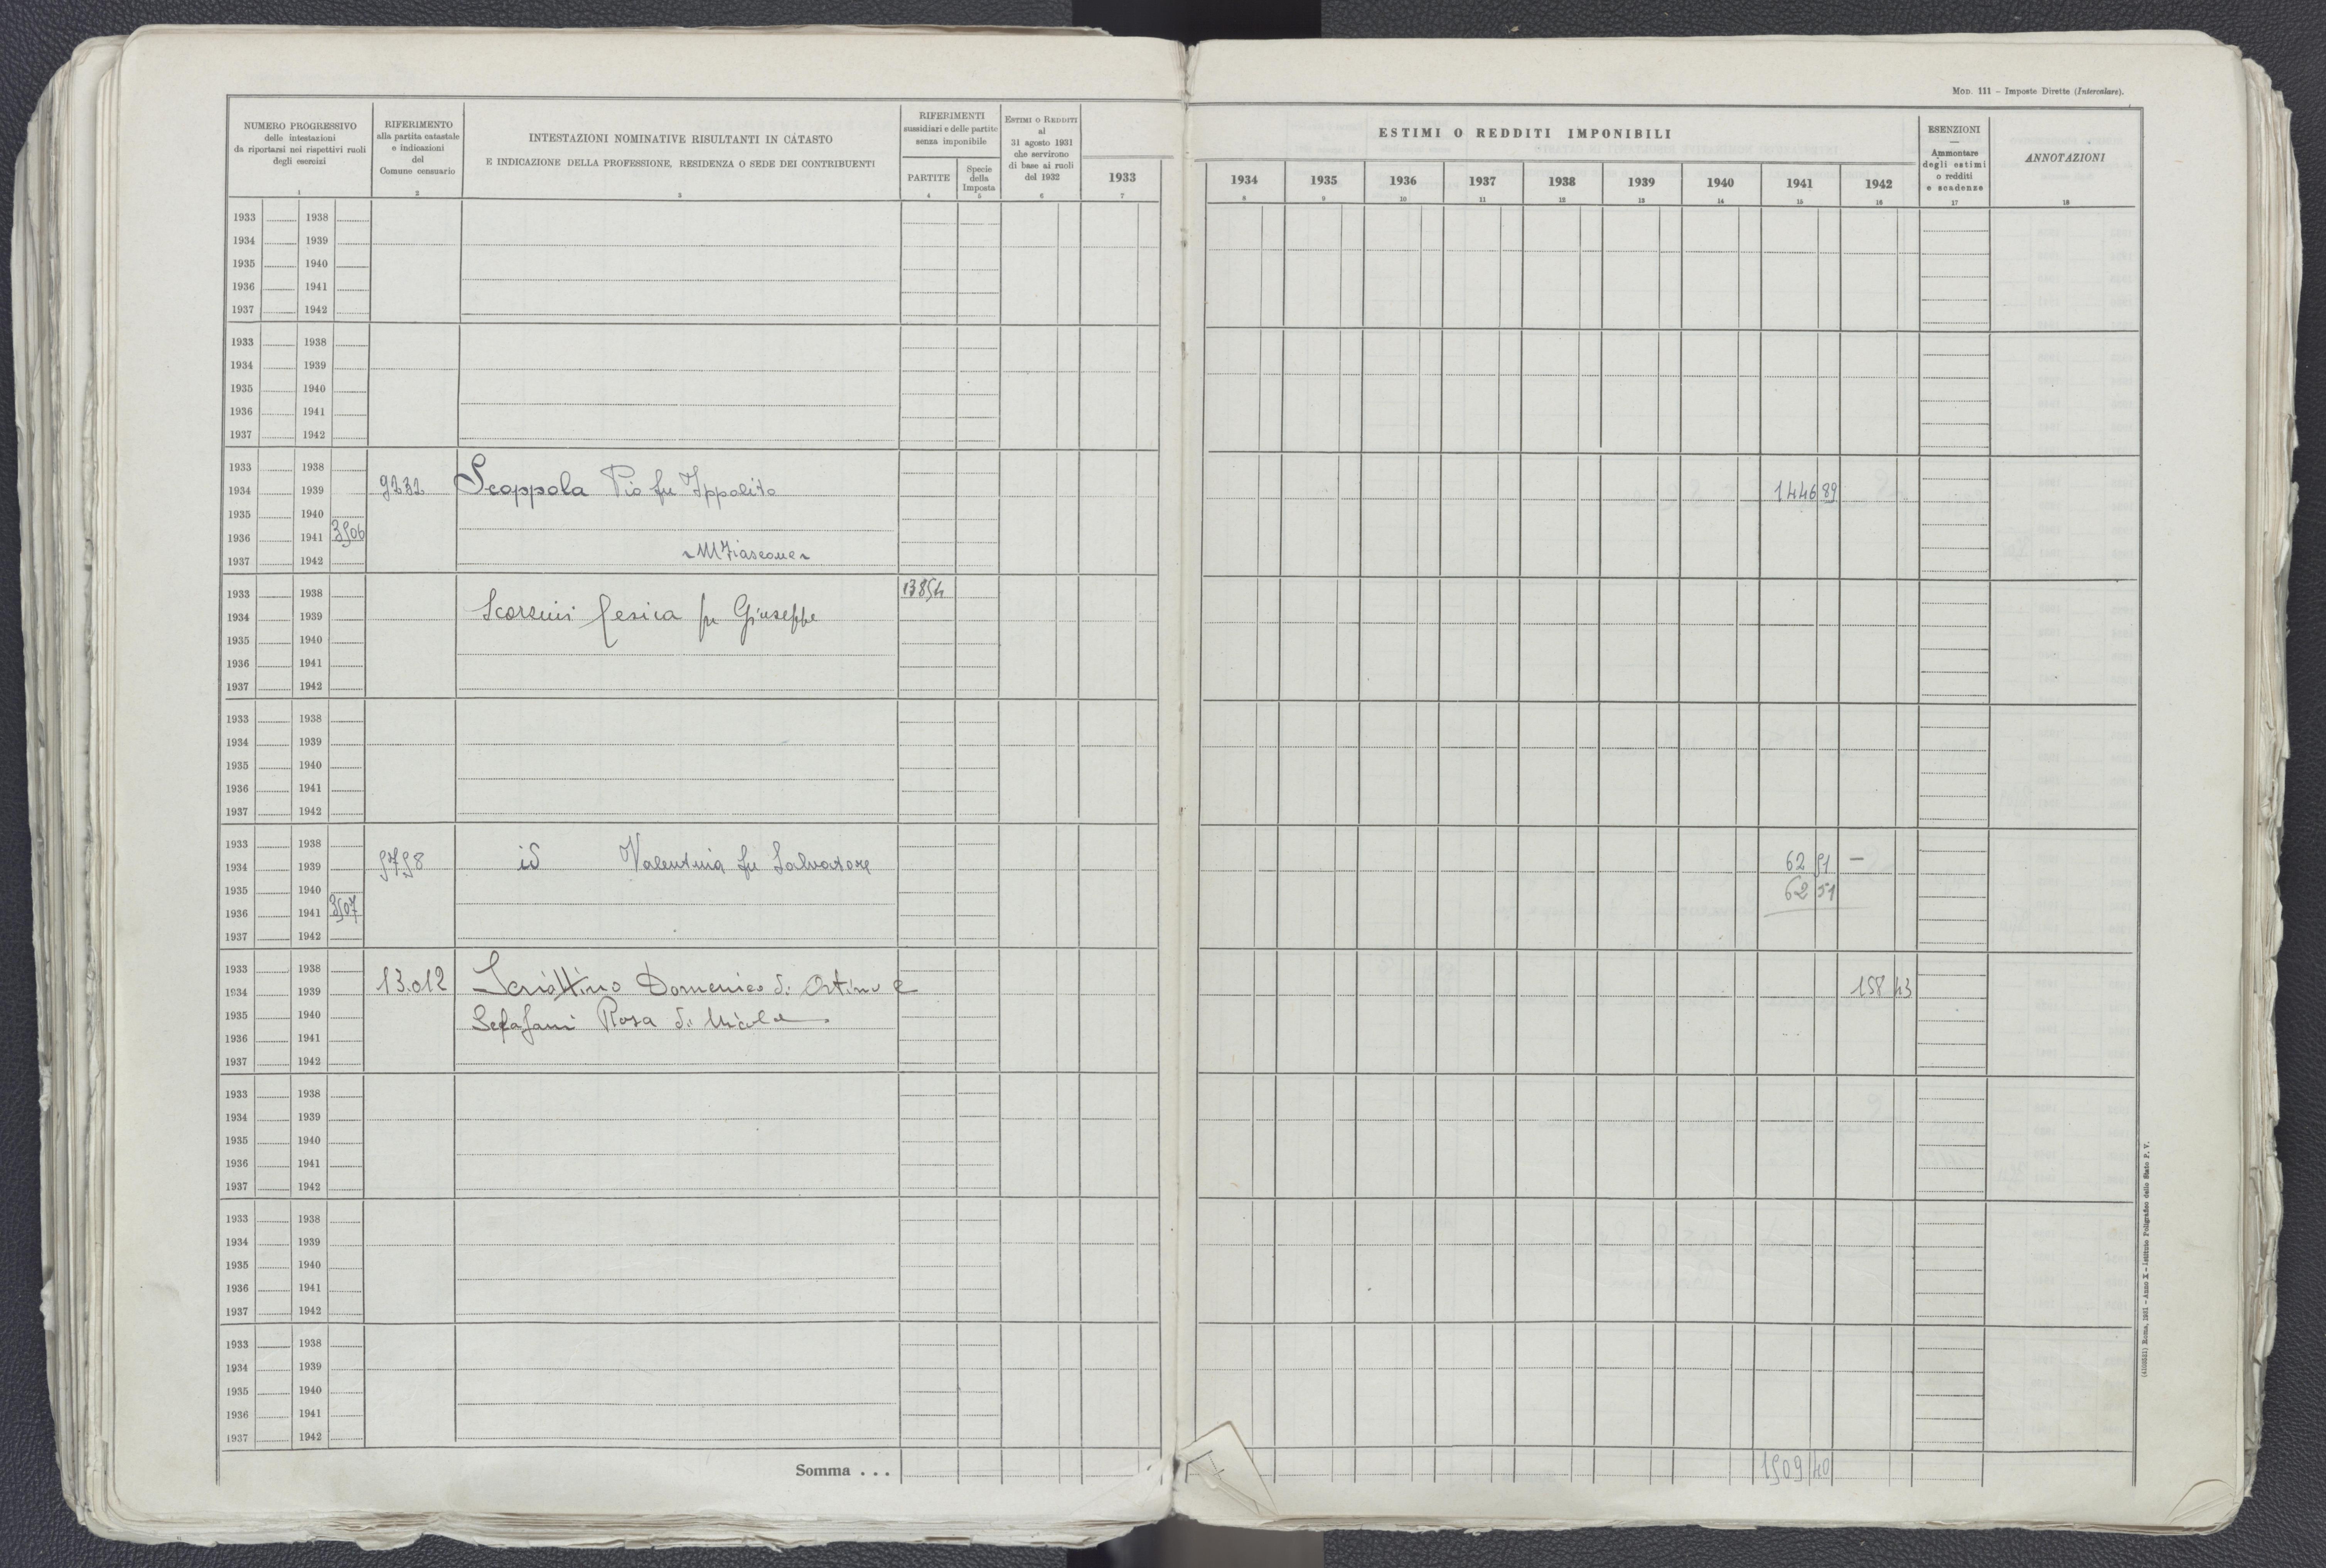 MOD. 111 – Imposte Dirette (Intercalare).
NUMERO PROGRESSIVO
delle intestazioni
da riportarsi nei rispettivi ruoli
degli esercizi
1
RIFERIMENTO
alla partita catastale
e indicazioni
del
Comune censuario
2
INTESTAZIONI NOMINATIVE RISULTANTI IN CATASTO
E INDICAZIONE DELLA PROFESSIONE, RESIDENZA O SEDE DEI CONTRIBUENTI
3
RIFERIMENTI
sussidiari e delle partite
senza imponibile
PARTITE
4
Specie
della
Imposta
5
ESTIMI O REDDITI
al
31 agosto 1931
che servirono
di base ai ruoli
del 1932
6
1933
7
ESTIMI O REDDITI IMPONIBILI
1934 1935 1936 1937 1938 1939 1940 1941 1942
8 9 10 11 12 13 14 15 16
ESENZIONI
—
Ammontare
degli estimi
o redditi
e scadenze
17
ANNOTAZIONI
18
1933 1938
1934 1939
1935 1940
1936 1941
1937 1942
1933 1938
1934 1939
1935 1940
1936 1941
1937 1942
1933 1938
1934 1939 9232 Scoppola Pio fu Ippolito 1446 89
1935 1940
1936 1941 3506
1937 1942 M Fiascone
1933 1938 13854
1934 1939 fu Giuseppe
1935 1940
1936 1941
1937 1942
1933 1938
1934 1939
1935 1940
1936 1941
1937 1942
1933 1938
1934 1939 9798 id Valentina fu Salvatore 62 51 —
1935 1940 62 51
1936 1941 3507
1937 1942
1933 1938
1934 1939 13.012 Domenico di 158 43
1935 1940 Rosa di Nicola
1936 1941
1937 1942
1933 1938
1934 1939
1935 1940
1936 1941
1937 1942
1933 1938
1934 1939
1935 1940
1936 1941
1937 1942
1933 1938
1934 1939
1935 1940
1936 1941
1937 1942
Somma . . . 1509 40
(4100531) Roma, 1931 – Anno X – Istituto Poligrafico dello Stato P. V.